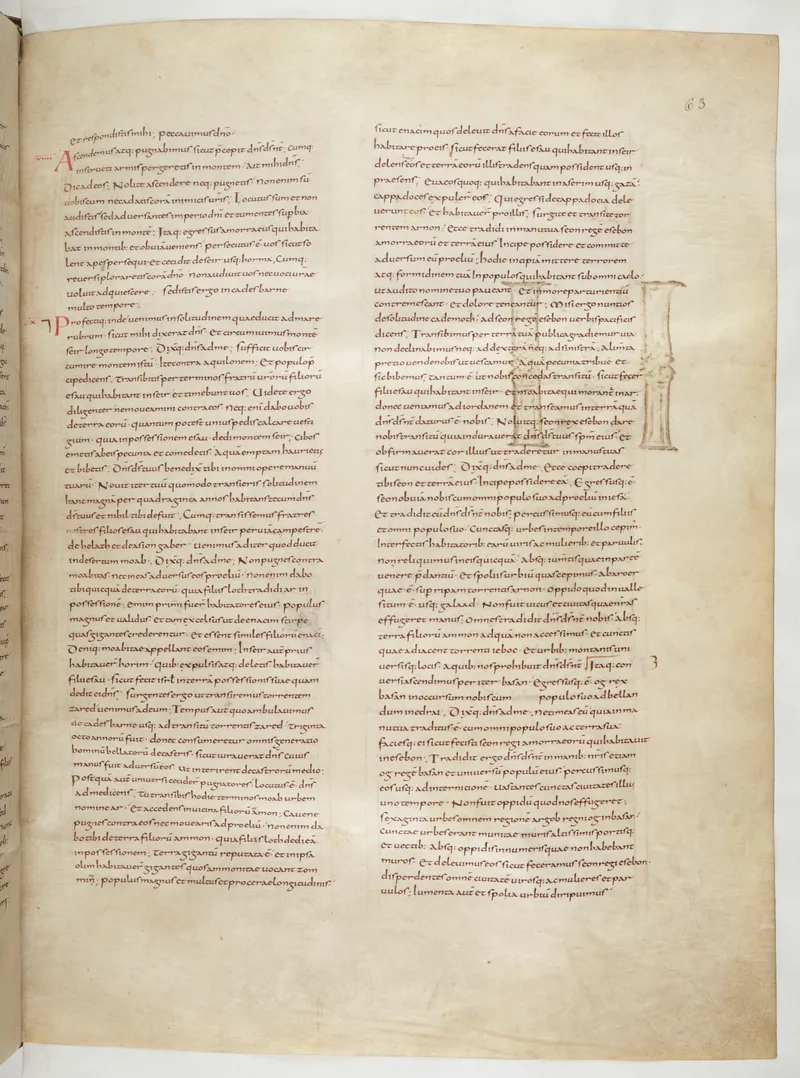 63
et respondistis mihi; peccauimus dño
Ascendemus atq; pugnabimus sicut p̄cepit dñs dš nr̄; Cumq;
instructi armis pergeretis in montem; Ait mihi dñs;
Dic ad eos; Nolite ascendere neq; pugnetis; Non enim sū
uobiscum ne cadatis corā inimicis uris; Locutus sum et non
audistis; sed aduersantes imperio dni et tumentes supbia
ascendistis in montē; Itaq; egressus amorraeus qui habita
bat in montib; et obuiā ueniens persecutus ē uos sicut so
lent apes persequi et cecidit de seir usq; horma; Cumq;
reuersi ploraretis corā dno non audiuit uos nec uoci urae
uoluit adquiescere; sedistis ergo in cadesbarne
multo tempore;
Profectiq; inde uenimus in solitudinem quae ducit ad mare
rubrum; sicut mihi dixerat dñs; Et circumiuimus montē
seir longo tempore; Dixitq; dñs ad me; sufficit uobis cir
cumire montem istū; Ite contra aquilonem; Et populo p̄
cipe dicens; Transibitis per terminos fratrū urorū filiorū
esau qui habitant in seir et timebunt uos; Uidete ergo
diligenter ne moueamini contra eos; Neq; enī dabo uobis
de terra eorū quantum potest unius pedis calcare uesti
gium; quia in possessionem esau dedi montem seir; Cibos
emetis ab eis pecunia et comedetis; Aquā emptam haurietis
et bibetis; Dñs dš tuus benedixit tibi in omni opere manuū
tuarū; Nouit iter tuū quomodo transieris solitudinem
hanc magnā per quadraginta annos habitans tecum dñs
dš tuus et nihil tibi defuit; Cumq; transissemus fratres
nostros filios esau qui habitabant in seir per uiā campestrē
de helath et de asion gaber; uenimus ad iter quod ducit
in desertum moab; Dixitq; dñs ad me; Non pugnes contra
moabitas nec ineas aduersus eos proeliū; non enim dabo
tibi quicquā de terra eorū; quia filiis loth tradidi ar in
possessionē; emim primi fuer̄ habitatores eius; populus
magnus et ualidus et tam excelsus ut de enacim stirpe
quasi gigantes crederentur; Et essent similes filiorū enaci;
Deniq; moabitae appellant eos emim; In seir aut prius
habitauer̄ horim; Quib; expulsis atq; deletis habitauer̄
filii esau; sicut fecit isrl in terra possessionis suae quam
dedit ei dñs; Surgentes ergo ut transiremus torrentem
zared uenimus ad eum; Tempus aut quo ambulauimus
de cadesbarne usq; ad transitū torrentis zared; triginta
octo annorū fuit; donec consumeretur omnis generatio
hominū bellatorū de castris; sicut iurauerat dñs cuius
manus fuit aduersū eos; ut interirent de castrorū medio;
Postquā aut uniuersi ceciderꝰ pugnatores; Locutus ē dñs
ad me dicens; Tu transibis hodie terminos moab urbem
nomine ar; Et accedens in uicina filiorū ammon; Caue ne
pugnes contra eos nec mouearis ad proeliū; non enim da
bo tibi de terra filiorū ammon; quia filiis loth dedi eā
in possessionem; terra gigantū reputata ē; et in ipsa
olim habitauer̄ gigantes quos ammonitae uocant zom
mim; populus magnus et multus et procerae longitudinis;
sicut enacim quos deleuit dñs a facie eorum et fecit illos
habitare pro eis; sicut fecerat filiis esau qui habitant in seir
delens eos et terrā eorū illis tradens quam possident usq; in
praesens; Euaeos quoq; qui habitabant in aserim usq; gazā;
cappadoces expuler̄ eos; Qui egressi de cappadocia dele
uerunt eos; et habitauer̄ pro illis; surgite et transite tor
rentem arnon; Ecce tradidi in manu tua seon regē esebon
amorraeorū et terrā eius; Incipe possidere et committe
aduersum eū proeliū; hodie incipiā mittere terrorem
atq; formidinem tuā in populos qui habitant sub omni caelo;
ut audito nomine tuo paueant; Et in more parturientiū
contremescant; Et dolore teneantur; Misi ergo nuntios
de solitudine cademoth; ad seon regē esebon uerbis pacificis
dicens; Transibimus per terrā tuā publica gradiemur uia
non declinabimus neq; ad dexterā neq; ad sinistrā; Alimta
pretio uende nobis ut uescamur; Aquā pecunia tribue et
sic bibemus; tantum ē ut nobis concedas transitū; sicut fecer̄
filii esau qui habitant in seir; et moabitae qui morantr̄ in ar;
donec ueniamus ad iordanem et transeamus in terrā quā
dñs dš nr̄ daturus ē nobis; Noluitq; seon rex esebon dare
nobis transitū; quia indurauerat dñs dš tuus spm̄ eius et
obfirmauerat cor illius ut traderetur in manus tuas
sicut nunc uides; Dixitq; dñs ad me; Ecce coepi tradere
tibi seon et terrā eius; Incipe possidere eā; Egressusq; ē
seon obuiā nobis cum omni populo suo ad proeliū in iesa;
Et tradidit eū dñs dš nr̄ nobis; percussimusq; eū cum filiis
et omni populo suo; Cunctasq; urbes in tempore illo cepim;
Interfectis habitatorib; earū uiris ac mulierib; et paruulis;
non reliquimus in eis quicquā; Absq; iumtis quae in parte
uenere p̄dantiū; et spoliis urbiū quas cepimus; ab aroer
quae ē sup ripam torrentis arnon; oppido quod in ualle
situm ē usq; galaad; Non fuit uicus et ciuitas quae nras
effugeret manus; Omnes tradidit dñs dš nr̄ nobis; absq;
terra filiorū ammon ad quā non accessimus; Et cunctis
quae adiacent torrenti ieboc; et urbib; montanis uni
uersisq; locis a quib; nos prohibuit dñs dš nr̄; Itaq; con
uersi ascendimus per iter basan; Egressusq; ē og rex
basan in occursum nobis cum populo suo ad bellan
dum in edrai; Dixitq; dñs ad me; ne timeas eū quia in ma
nu tua traditus ē cum omni populo suo ac terra sua;
faciesq; ei sicut fecisti seon regi amorraeorū qui habitauit
in esebon; Tradidit ergo dñs dš nr̄ in manib; nris etiam
og regē basan et uniuersū populū eius; percussimusq;
eos usq; ad internicionē; Uastantes cunctas ciuitates illius
uno tempore; Non fuit oppidū quod nos effugeret;
sexaginta urbes omnem regionē argob regni og in basan;
Cunctae urbes erant munitae muris altissimis portisq;
et uectib; Absq; oppidis innumeris quae non habebant
muros; Et deleuimus eos sicut feceramus seon regi esebon;
disperdentes omnē ciuitatē uirosq; ac mulieres et par
uulos; Iumenta aut et spolia urbiū diripuimus;